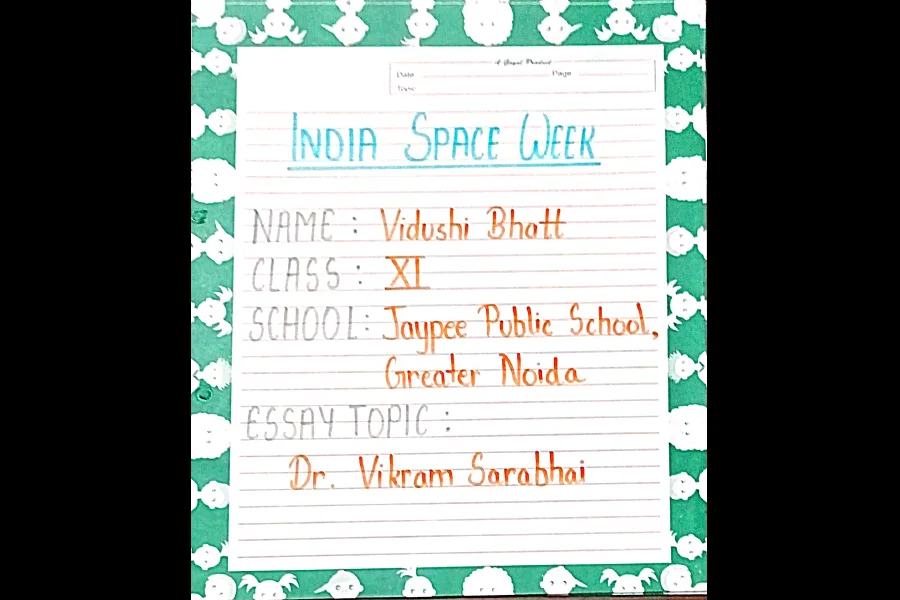 Date
Page
Topic
INDIA SPACE WEEK
NAME : Vidushi Bhatt
CLASS : XI
SCHOOL : Jaypee Public School,
Greater Noida
ESSAY TOPIC :
Dr. Vikram Sarabhai